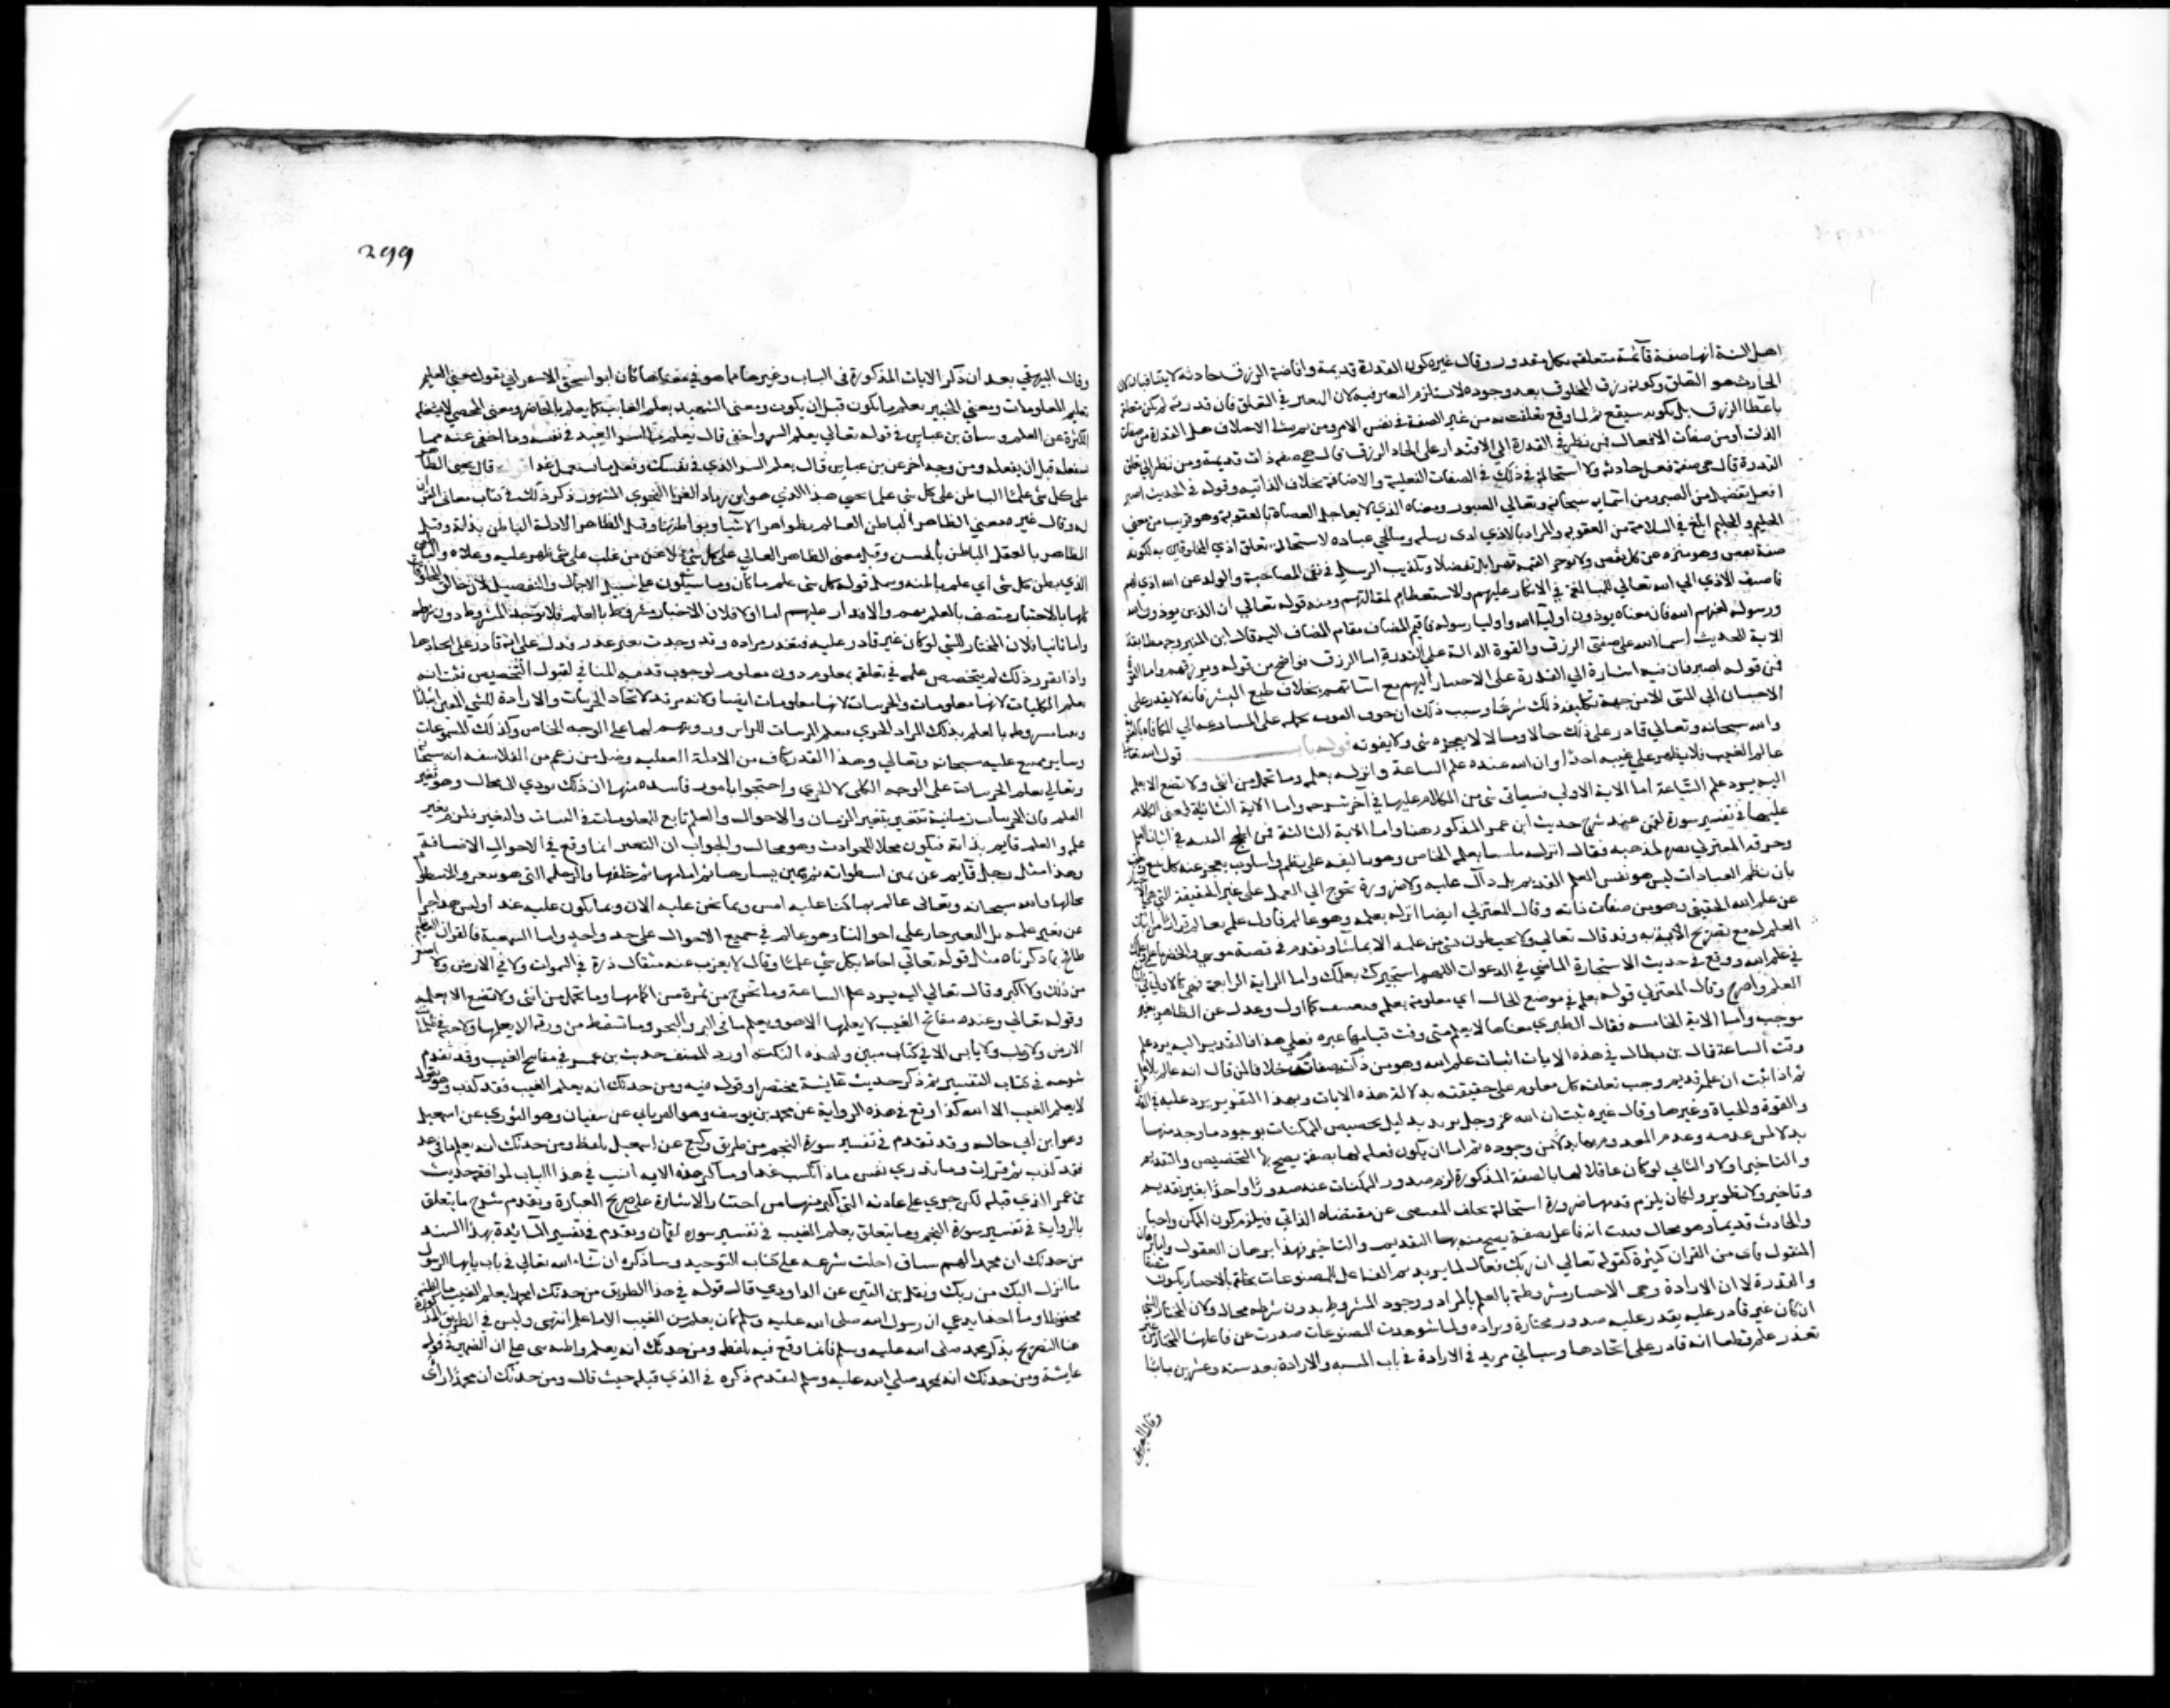 اهل السنة انها صفة قائمة متعلقة بكل مقدور وقال غيره كون القدرة قديمة وافاضة الرزق حادثة لا يتنافيان لان
الحادث هو التعلق وكونه رزق المخلوق بعد وجوده لا يستلزم التغير فيه لان التغير في التعلق فان قدرته لم تكن متعلقة
باعطا الرزق بل بكونه سيقع ثم لما وقع تعلقت به من غير ان تتغير الصفة في نفس الامر ومن ثم نشا الاختلاف هل القدرة من صفات
الذات او من صفات الافعال فمن نظر في القدرة الى الاقتدار على ايجاد الرزق قال هي صفة ذات قديمة ومن نظر الى تعلق
القدرة قال هي صفة فعل حادثة ولا استحالة في ذلك في الصفات الفعلية والاضافية بخلاف الذاتية وقوله في الحديث اصبر
افعل تفضيل من الصبر ومن اسمائه سبحانه وتعالى الصبور ومعناه الذي لا يعاجل العصاة بالعقوبة وهو قريب من معنى
الحليم والحليم ابلغ في السلامة من العقوبة والمراد بالاذي اذى رسله وصالحي عباده لاستحالة تعلق اذي المخلوقين به لكونه
صفة نقص وهو منزه عن كل نقص ولا يؤخر النقمة قهرا بل تفضلا وتكذيب الرسل في نفي الصاحبة والولد عن الله اذي لهم
فاضيف الاذي الى الله تعالى للمبالغة في الانكار عليهم والاستعظام لمقالتهم ومنه قوله تعالى ان الذين يوذون الله
ورسوله لعنهم الله فان معناه يوذون اوليا الله واوليا رسوله فاقيم المضاف مقام المضاف اليه قال ابن المنير وجه مطابقة
الاية للحديث اسما الله على صفتي الرزق والقوة الدالة على القدرة اما الرزق فواضح من قوله ويرزقهم واما القوة
فمن قوله اصبر فان فيه اشارة الى القدرة على الاحسان اليهم مع اساءتهم بخلاف طبع البشر فانه لا يقدر على
الاحسان الى المسي الا من جهة تكليفه ذلك شرعا وسبب ذلك ان خوف الفوت يحمله على المسارعة الى المكافاة بالعقوبة
والله سبحانه وتعالى قادر على ذلك حالا ومالا لا يعجزه شي ولا يفوته قوله باب قول الله تعالى
عالم الغيب فلا يظهر على غيبه احدا وان الله عنده علم الساعة وانزله بعلمه وما تحمل من انثى ولا تضع الا بعلمه
اليه يرد علم الساعة اما الاية الاولى فسياتي شي من الكلام عليها في آخر شرحه واما الاية الثانية فمضى الكلام
عليها في تفسير سورة لقمن عند شرح حديث ابن عمر المذكور هنا واما الاية الثالثة فمن الحجج البينة في اثبات العلم
وحرفه المعتزلي نصرة لمذهبه فقال انزله ملتبسا بعلمه الخاص وهو تاليفه على نظم واسلوب يعجز عنه كل بليغ
بان نظم العبادات ليس هو نفس العلم القديم بل دال عليه ولا ضرورة تحوج الى الحمل على غير الحقيقة التي هي
عن علم الله الحقيقي وهو من صفات ذاته وقال المعتزلي ايضا انزله بعلمه وهو عالم فاول علمه بعالم فرارا من اثبات
العلم له مع تصريح الاية به وقد قال تعالى ولا يحيطون بشي من علمه الا بما شاء وتقدم في قصة موسى والخضر
في علم الله ووقع في حديث الاستخارة الماضي في الدعوات اللهم اني استخيرك بعلمك واما الاية الرابعة فهي كالاولى في
العلم واصرح وقال المعتزلي قوله بعلمه في موضع الحال اي معلومة بعلمه فتعسف كما اول وعدل عن الظاهر بغير
موجب واما الاية الخامسة فقال الطبري معناها لا يعلم متى وقت قيامها غيره فعلى هذا فالتقدير اليه يرد علم
وقت الساعة قال بن بطال في هذه الايات اثبات علم الله وهو من صفات ذاته خلافا لمن قال انه عالم بلا علم
ثم اذا ثبت ان علمه قديم وجب تعلقه بكل معلوم على حقيقته بدلالة هذه الايات وبهذا التقرير يرد عليهم في القدرة
والقوة والحياة وغيرها وقال غيره ثبت ان الله عز وجل مريد بدليل تخصيص الممكنات بوجود ما وجد منها
بدلا من عدمه وعدم المعدوم منها بدلا من وجوده ثم اما ان يكون فعله لها بصفة يصح بها التخصيص والتقديم
والتاخير اولا والثاني لو كان فاعلا لها لا بالصفة المذكورة لزم صدور الممكنات عنه صدورا واحدا بغير تقديم
وتاخير ولا تطوير ولكان يلزم قدمها ضرورة استحالة تخلف المقتضي عن مقتضاه الذاتي فيلزم كون الممكن واجبا
والحادث قديما وهو محال فثبت انه فاعل بصفة يصح منه بها التقديم والتاخير فهذا برهان العقول واما برهان
المنقول فاى من القران كثيرة كقوله تعالى ان ربك فعال لما يريد ثم الفاعل للمصنوعات بخلقه بالاختيار يكون متصفا
والقدرة لان الارادة وهي الاختيار مشروطة بالعلم بالمراد ووجود المشروط بدون شرطه محال ولان المختار للشي
ان كان غير قادر عليه تعذر عليه صدور مختاره ومراده ولما شوهدت المصنوعات صدرت عن فاعلها المختار من غير
تعذر علم قطعا انه قادر على ايجادها وسياتي مزيد في الارادة في باب المشية والارادة بعد ستة وعشرين بابا
وقال البيهقي
299
وقال البيهقي بعد ان ذكر الايات المذكورة في الباب وغيرها مما هو في معناها كان ابو اسحق الاسفرايني يقول معنى العليم
يعلم المعلومات ومعنى الخبير يعلم ما يكون قبل ان يكون ومعنى الشهيد يعلم الغايب كما يعلم الحاضر ومعنى المحصي لا يشغله
الكثرة عن العلم وساق عن بن عباس في قوله تعالى يعلم السر واخفى قال يعلم ما اسر العبد في نفسه وما اخفى عنه مما
سيفعله قبل ان يفعله ومن وجه اخر عن بن عباس قال يعلم السر الذي في نفسك ويعلم ما ستعمل غدا قوله قال يحيى الظاهر
على كل شي علما الباطن على كل شي علما يحيى هذا الذي هو ابن زياد الفرا النحوي المشهور ذكر ذلك في كتاب معاني القران
له وقال غيره معنى الظاهر الباطن العالم بظواهر الاشيا وبواطنها وقيل الظاهر بالادلة الباطن بذاته وقيل
الظاهر بالعقل الباطن بالحس وقيل معنى الظاهر العالي على كل شي لان من غلب على شي ظهر عليه وعلاه والباطن
الذي بطن كل شي اي علم باطنه وشمل قوله كل شي علم ما كان وما سيكون على سبيل الاجمال والتفصيل لان خالق المخلوقات
كلها بالاختيار متصف بالعلم بهم والاقتدار عليهم اما اولا فلان الاختيار مشروط بالعلم فلا يوجد المشروط دون شرطه
واما ثانيا فلان المختار للشي لو كان غير قادر عليه لتعذر مراده وقد وجدت بغير تعذر فدل على انه قادر على ايجادها
واذا تقرر ذلك لم يتخصص علمه في تعلقه بمعلوم دون معلوم لوجوب قدمه المنافي لقبول التخصيص فثبت انه
يعلم الكليات لانها معلومات والجزئيات لانها معلومات ايضا ولانه مريد لايجاد الجزئيات والارادة للشي المعين اثباتا
ونفيا مشروطة بالعلم بذلك المراد الجزئي فيعلم المرئيات للرائين ورويتهم لها على الوجه الخاص وكذلك المسموعات
وساير ما يسمع عليه سبحانه وتعالى وهذا القدر كاف من الادلة العقلية وضل من زعم من الفلاسفة انه سبحانه
وتعالى يعلم الجزئيات على الوجه الكلي لا الجزئي واحتجوا بامور فاسدة منها ان ذلك يودي الى محال وهو تغير
العلم فان الجزئيات زمانية تتغير بتغير الزمان والاحوال والعلم تابع للمعلومات في الثبات والتغير فيلزم تغير
علمه والعلم قايم بذاته فتكون محلا للحوادث وهو محال والجواب ان التغير انما وقع في الاحوال الاضافية
وهذا مثل رجل قام عن يمين اسطوانة ثم عن يسارها ثم امامها ثم خلفها فالرجل هو الذي يتغير والاسطوانة
بحالها والله سبحانه وتعالى عالم بما كنا عليه امس وبما نحن عليه الان وبما نكون عليه غدا وليس هذا خبرا
عن تغير علمه بل التغير جار على احوالنا وهو عالم في جميع الاحوال على حد واحد واما السمعية فالقران العظيم
طافح بما ذكرناه مثل قوله تعالى احاط بكل شي علما وقال لا يعزب عنه مثقال ذرة في السموات ولا في الارض ولا اصغر
من ذلك ولا اكبر وقال تعالى اليه يرد علم الساعة وما تخرج من ثمرة من اكمامها وما تحمل من انثى ولا تضع الا بعلمه
وقوله تعالى وعنده مفاتح الغيب لا يعلمها الا هو ويعلم ما في البر والبحر وما تسقط من ورقة الا يعلمها ولا حبة في ظلمات
الارض ولا رطب ولا يابس الا في كتاب مبين ولهذه النكتة اورد المصنف حديث بن عمر في مفاتيح الغيب وقد تقدم
شرحه في كتاب التفسير ثم ذكر حديث عايشة مختصرا وقوله فيه ومن حدثك انه يعلم الغيب فقد كذب وهو يقول
لا يعلم الغيب الا الله كذا وقع في هذه الرواية عن محمد بن يوسف وهو الفريابي عن سفيان وهو الثوري عن اسمعيل
وهو ابن ابي خالد وقد تقدم في تفسير سورة النجم من طريق وكيع عن اسمعيل بلفظ ومن حدثك انه يعلم ما في غد
فقد كذب ثم قرات وما تدري نفس ماذا تكسب غدا وذكر هذه الاية انسب في هذا الباب لموافقته حديث
بن عمر الذي قبله لكن جرى على عادته التي اكثر منها من اختيار الاشارة على صريح العبارة وتقدم شرح ما يتعلق
بالرواية في تفسير سورة النجم وما يتعلق بعلم الغيب في تفسير سورة لقمان وتقدم في تفسير المائدة بهذا السند
من حدثك ان محمدا كتم ساق احلت شرحه على كتاب التوحيد وساذكره ان شاء الله تعالى في باب يا ايها الرسول
بلغ ما انزل اليك من ربك ونقل بن التين عن الداودي قال قوله في هذا الطريق من حدثك ان محمدا يعلم الغيب ما اظنه
محفوظا وما احد يدعي ان رسول الله صلى الله عليه وسلم كان يعلم من الغيب الا ما علم انتهى وليس في الطريق المذكورة
هنا التصريح بذكر محمد صلى الله عليه وسلم فانما وقع فيه بلفظ ومن حدثك انه يعلم واظنه بنى على ان الضمير في قول
عايشة ومن حدثك انه لمحمد صلى الله عليه وسلم لتقدم ذكره في الذي قبله حيث قالت ومن حدثك ان محمدا راى